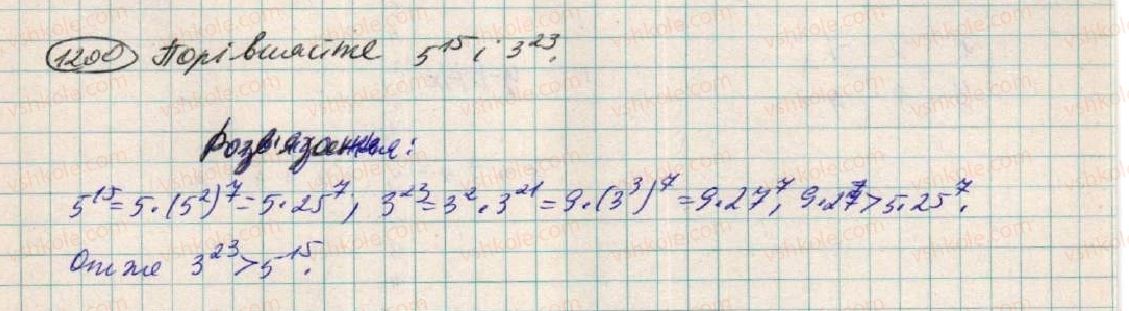 1200 Порівняйте 5¹⁵ і 3²³.
Розв'язання:
5¹⁵ = 5·(5²)⁷ = 5·25⁷; 3²³ = 3²·3²¹ = 9·(3³)⁷ = 9·27⁷; 9·27⁷ > 5·25⁷.
Отже 3²³ > 5¹⁵.